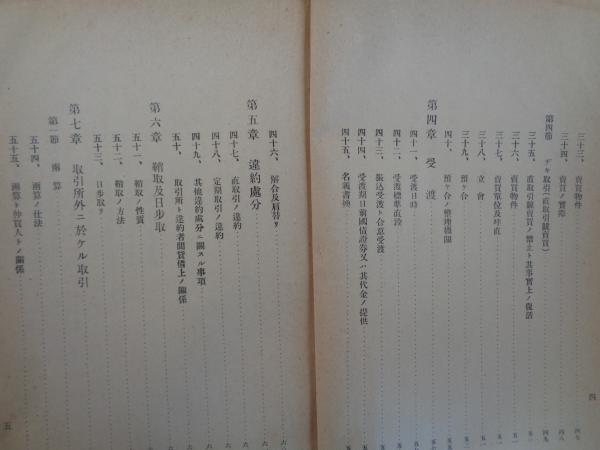 三十三、賣買物件
三十四、賣買ノ實際
第四節 ヂキ取引(直取引競賣買)
三十五、直取引競賣買ノ禁止ト其事實上ノ復活
三十六、賣買物件
三十七、賣買單位及呼直
三十八、立會
三十九、預ケ合
四十、預ケ合ノ整理機關
第四章 受渡
四十一、受渡日時
四十二、受渡標準直段
四十三、振込受渡ト合意受渡
四十四、受渡期日前國債證券又ハ其代金ノ提供
四十五、名義書換
四
四十六、解合及肩替リ
第五章 違約處分
四十七、直取引ノ違約
四十八、定限取引ノ違約
四十九、其他違約處分ニ關スル事項
五十、取引所ト違約者間貸借上ノ關係
第六章 鞘取及日步取
五十一、鞘取ノ性質
五十二、鞘取ノ方法
五十三、日步取リ
第七章 取引所外ニ於ケル取引
第一節 兩算
五十四、兩算ノ仕法
五十五、兩算ト仲買人トノ關係
五